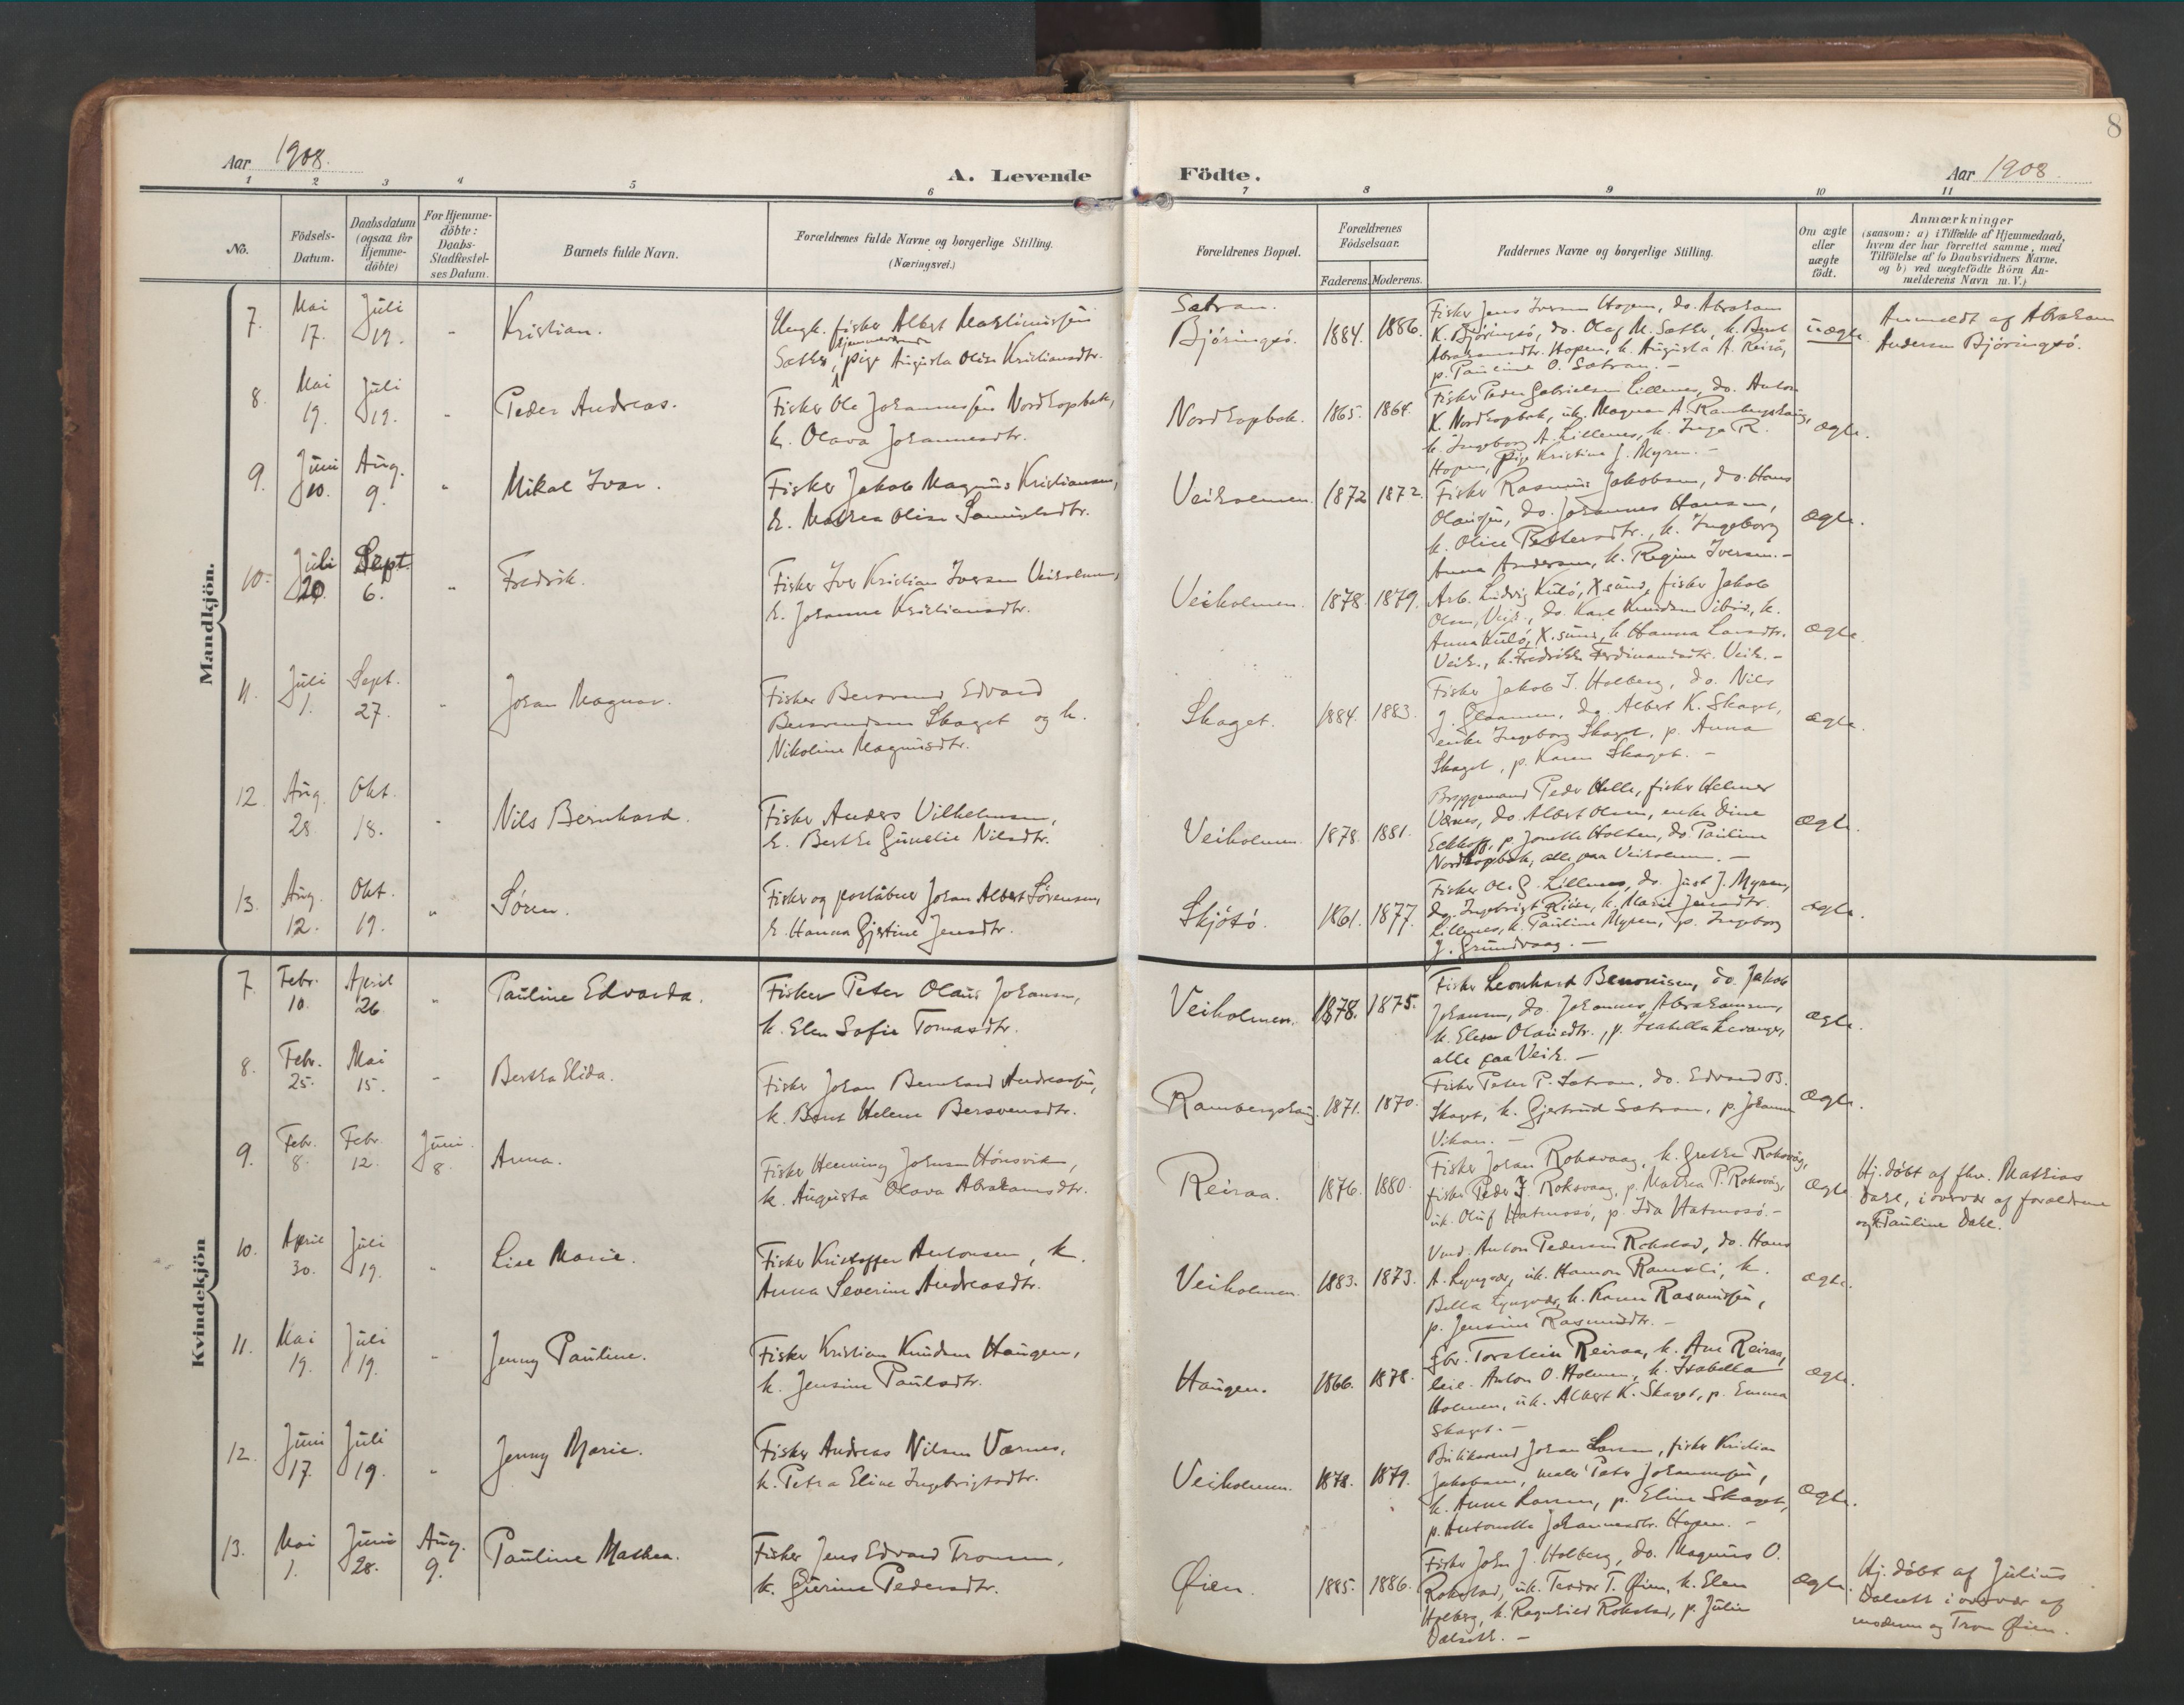 8
Aar 1908.
A. Levende Födte.
Aar 1908.
1 2 3 4 5 6 7 8 9 10 11
No.
Födsels-
Datum.
Daabsdatum
(ogsaa for
Hjemme-
döbte)
For Hjemme-
döbte:
Daabs-
Stadfæstel-
ses Datum.
Barnets fulde Navn.
Forældrenes fulde Navne og borgerlige Stilling.
(Næringsvei.)
Forældrenes Bopæl.
Forældrenes
Födselsaar.
Faderens. Moderens.
Faddernes Navne og borgerlige Stilling.
Om ægte
eller
uægte
födt.
Anmærkninger
(saasom: a) i Tilfælde af Hjemmedaab,
hvem der har forrettet samme, med
Tilföielse af to Daabsvidners Navne.
og b) ved uægtefödte Börn An-
melderens Navn m. V.)
Mandkjön.
7. Mai 17. Juli 19. " Kristian.
Ungk. fisker Albert Martinussen
hjemmeværende
Sæther, pige Augusta Olise Kristiansdtr.
Satran.
Björingsö. 1884. 1886.
Fisker Jens Iversen Hopen, do. Abraham
K. Björingsö, do. Olaf M. Sæther, k. Berit
Abrahamsdtr. Hopen, k. Augusta A. Reirö,
p. Pauline O. Satran. -
uægte.
Anmeldt af Abraham
Andersen Björingsö.
8. Mai 19. Juli 19. " Peder Andreas.
Fisker Ole Johannessen Nordhopbak,
k. Olava Johannesdtr.
Nordhopbak. 1865. 1864.
Fisker Peder Gabrielsen Lillenes, do. Anton
K. Nordhopbak, uk. Magnar A. Rambergshaug,
k. Ingeborg A. Lillenes, k. Inga R.
Hopen, pige Kristine J. Myren. -
ægte.
9. Juni 10. Aug. 9. " Mikal Ivar.
Fisker Jakob Magnus Kristiansen,
k. Mathea Olise Samuelsdtr.
Veiholmen. 1872 1872.
Fisker Rasmus Jakobsen, do. Hans
Olaussen, do. Johannes Hansen,
k. Olise Pettersdtr., k. Ingeborg
Anna Andersen, k. Regine Iversen. -
ægte.
10. Juli 20. Sept. 6. " Fredrik.
Fisker Iver Kristian Iversen Veiholmen,
k. Johanne Kristiansdtr.
Veiholmen. 1878. 1879.
Arb. Ludvig Kulö, X.sund, fisker Jakob
Olsen, Veih., do. Karl Knudsen ibid., k.
Anna Kulö, X.sund, k. Hanna Larsdtr.
Veih., k. Fredrikke Ferdinandsdtr. Veih. -
ægte
11. Juli 1. Sept. 27. " Johan Magnar.
Fisker Bersvend Edvard
Bersvendsen Skaget og k.
Nikoline Magnusdtr.
Skaget. 1884. 1883.
Fisker Jakob J. Holberg, do. Nils
J. Glaamen, do. Albert K. Skaget,
enke Ingeborg Skaget, p. Anna
Skaget, p. Karen Skaget. -
ægte.
12. Aug. 28. Okt. 18. " Nils Bernhard.
Fisker Anders Vilhelmsen,
k. Berthe Gunelie Nilsdtr.
Veiholmen 1878. 1881.
Bryggemand Peder Helle, fisker Helmer
Værnes, do. Albert Olsen, enke Dine
Eckhoff, p. Jonette Holthen, do. Pauline
Nordhopbak, alle paa Veiholmen. -
ægte.
13. Aug. 12. Okt. 19. " Sören.
Fisker og postaabner Johan Albert Sörensen,
k. Hanna Gjertine Jensdtr.
Skjötö. 1861. 1877.
Fisker Ole G. Lillenes, do. Just J. Myren,
do. Ingebrigt Reirö, k. Marie Jensdtr.
Lillenes, k. Pauline Myren, p. Ingeborg
J. Grundvaag. -
ægte.
Kvindekjön
7. Febr. 10. April 26. " Pauline Edvarda.
Fisker Peter Olaus Johansen,
k. Elen Sofie Tomasdtr.
Veiholmen. 1878. 1875.
Fisker Leonhard Benonisen, do. Jakob
Johansen, do. Johannes Abrahamsen,
k. Elena Olausdtr., p. Isabella Levanger,
alle paa Veih. -
ægte.
8. Febr. 25. Mai 15. " Bertha Elida.
Fisker Johan Bernhard Andreassen,
k. Berit Helene Bersvensdtr.
Rambergshaug. 1871. 1870.
Fisker Peter P. Satran, do. Edvard B.
Skaget, k. Gjertrud Satran, p. Johanna
Vikan. -
ægte.
9. Febr. 8. Febr. 12. Juni 8. Anna.
Fisker Henning Johnsen Hönsvik,
k. Augusta Olava Abrahamsdtr.
Reiraa. 1876. 1880.
Fisker Johan Roksvaag, k. Grethe Roksvåg,
fisker Peder J. Roksvaag, p. Mathea P. Roksvåg,
uk. Oluf Hatmosö, p. Ida Hatmosö. -
ægte
Hj. döbt af fhv. Mathias
Dahl, i overvær af forældrene
og Pauline Dahl.
10. April 30. Juli 19. " Lise Marie.
Fisker Kristoffer Antonsen, k.
Anna Severine Andreasdtr.
Veiholmen. 1883. 1873.
Vmd. Anton Pedersen Rokstad, do. Hans
A. Lyngvær, uk. Hamon Ramsli, k.
Bella Lyngvær, k. Karen Rasmussen,
p. Jensine Rasmusdtr. -
ægte.
11. Mai 19. Juli 19. " Jenny Pauline.
Fisker Kristian Knudsen Haugen,
k. Jensine Paulsdtr.
Haugen. 1866. 1878.
Gbr. Torstein Reiraa, k. Ane Reiraa,
leil. Anton O. Holmen, k. Isabella
Holmen, uk. Albert K. Skaget, p. Emma
Skaget. -
ægte.
12. Juni 17. Juli 19. " Jenny Marie.
Fisker Andreas Nilsen Værnes,
k. Petra Eline Ingebrigtsdtr.
Veiholmen. 1878. 1879.
Butiksvend Johan Larsen, fisker Kristian
Jakobsen, maler Peter Johannessen,
k. Anne Larsen, p. Eline Skaget,
p. Antonette Johannesdtr. Hopen. -
ægte.
13. Mai 1. Juni 28. Aug. 9. Pauline Mathea.
Fisker Jens Edvard Tronsen,
k. Gurine Pedersdtr.
Öien. 1885. 1886.
Fisker John J. Holberg, do. Magnus O.
Rokstad, uk. Teodor T. Öien, k. Elen
Holberg, k. Ragnhild Rokstad, p. Julie
Dalseth. -
ægte.
Hj. döbt af Julius
Dalseth i overvær af
moderen og Tron Öien.